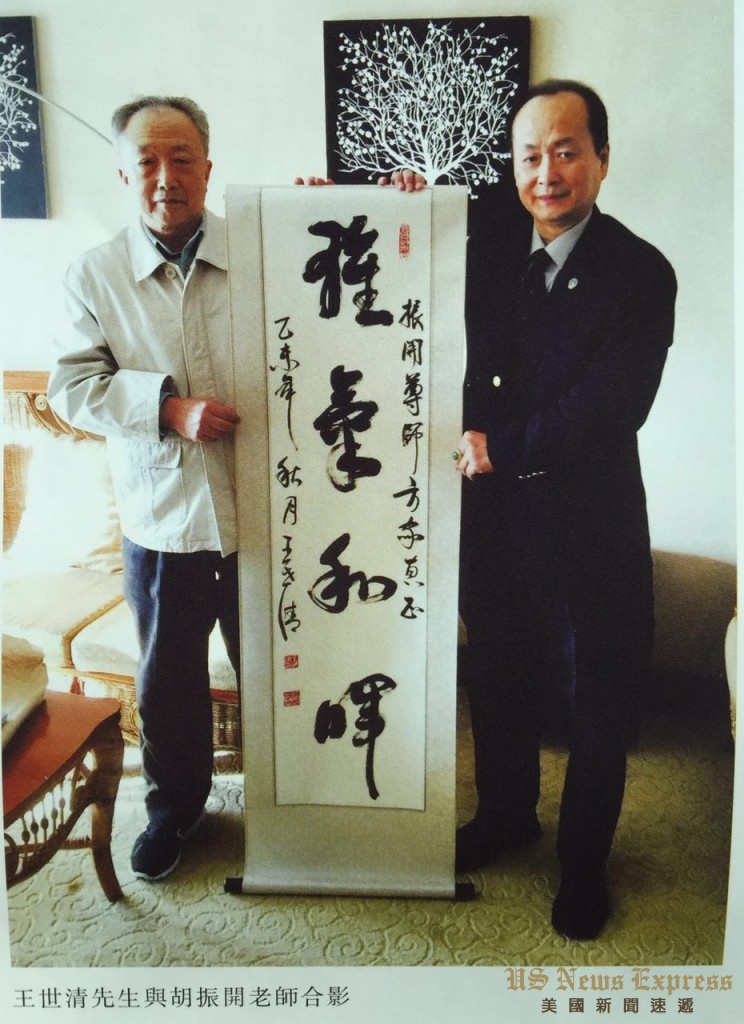 振開尊師方家惠正
雅氣和暉
乙未年秋月王世清
王世清先生與胡振開老師合影
US News Express
美國新聞速遞